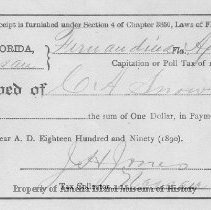 ceipt is furnished under Section 4 of Chapter 3850, Laws of F
ORIDA, Fernandina Fla.
Capitation or Poll Tax of
ed of C. A. Snow
the sum of One Dollar, in Paym
ear A. D. Eighteen Hundred and Ninety (1890).
J. H. Jones
Tax Collector
Property of Amelia Island Museum of History